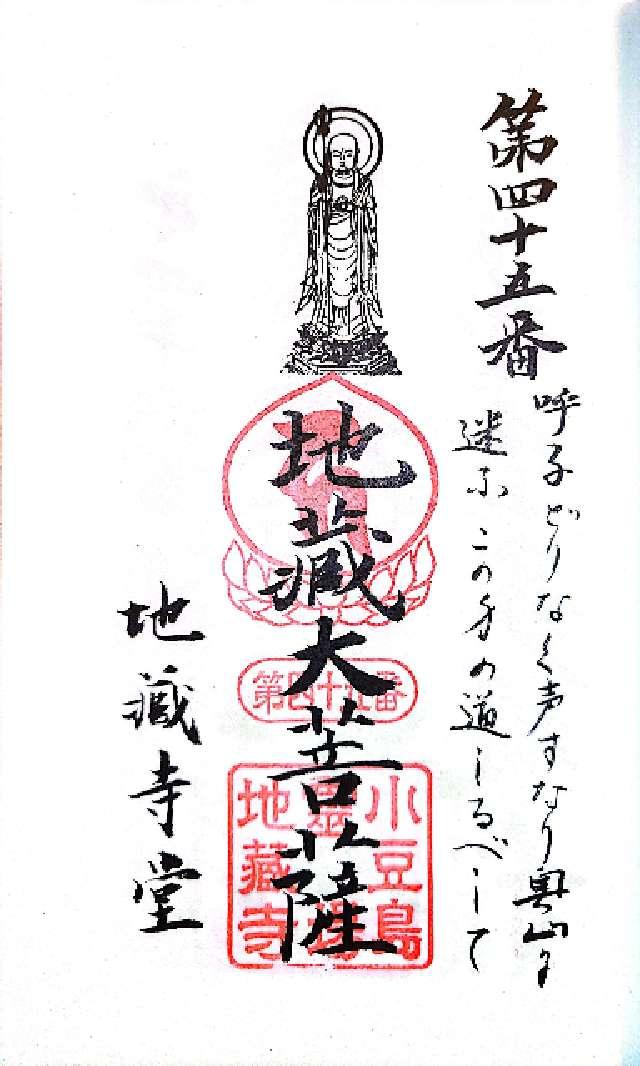 第四十五番
呼子どりなく声すなり奥山に
迷ふこの身の道しるべして
地蔵大菩薩
第四十五番
小豆島
霊場
地蔵寺
地蔵寺堂